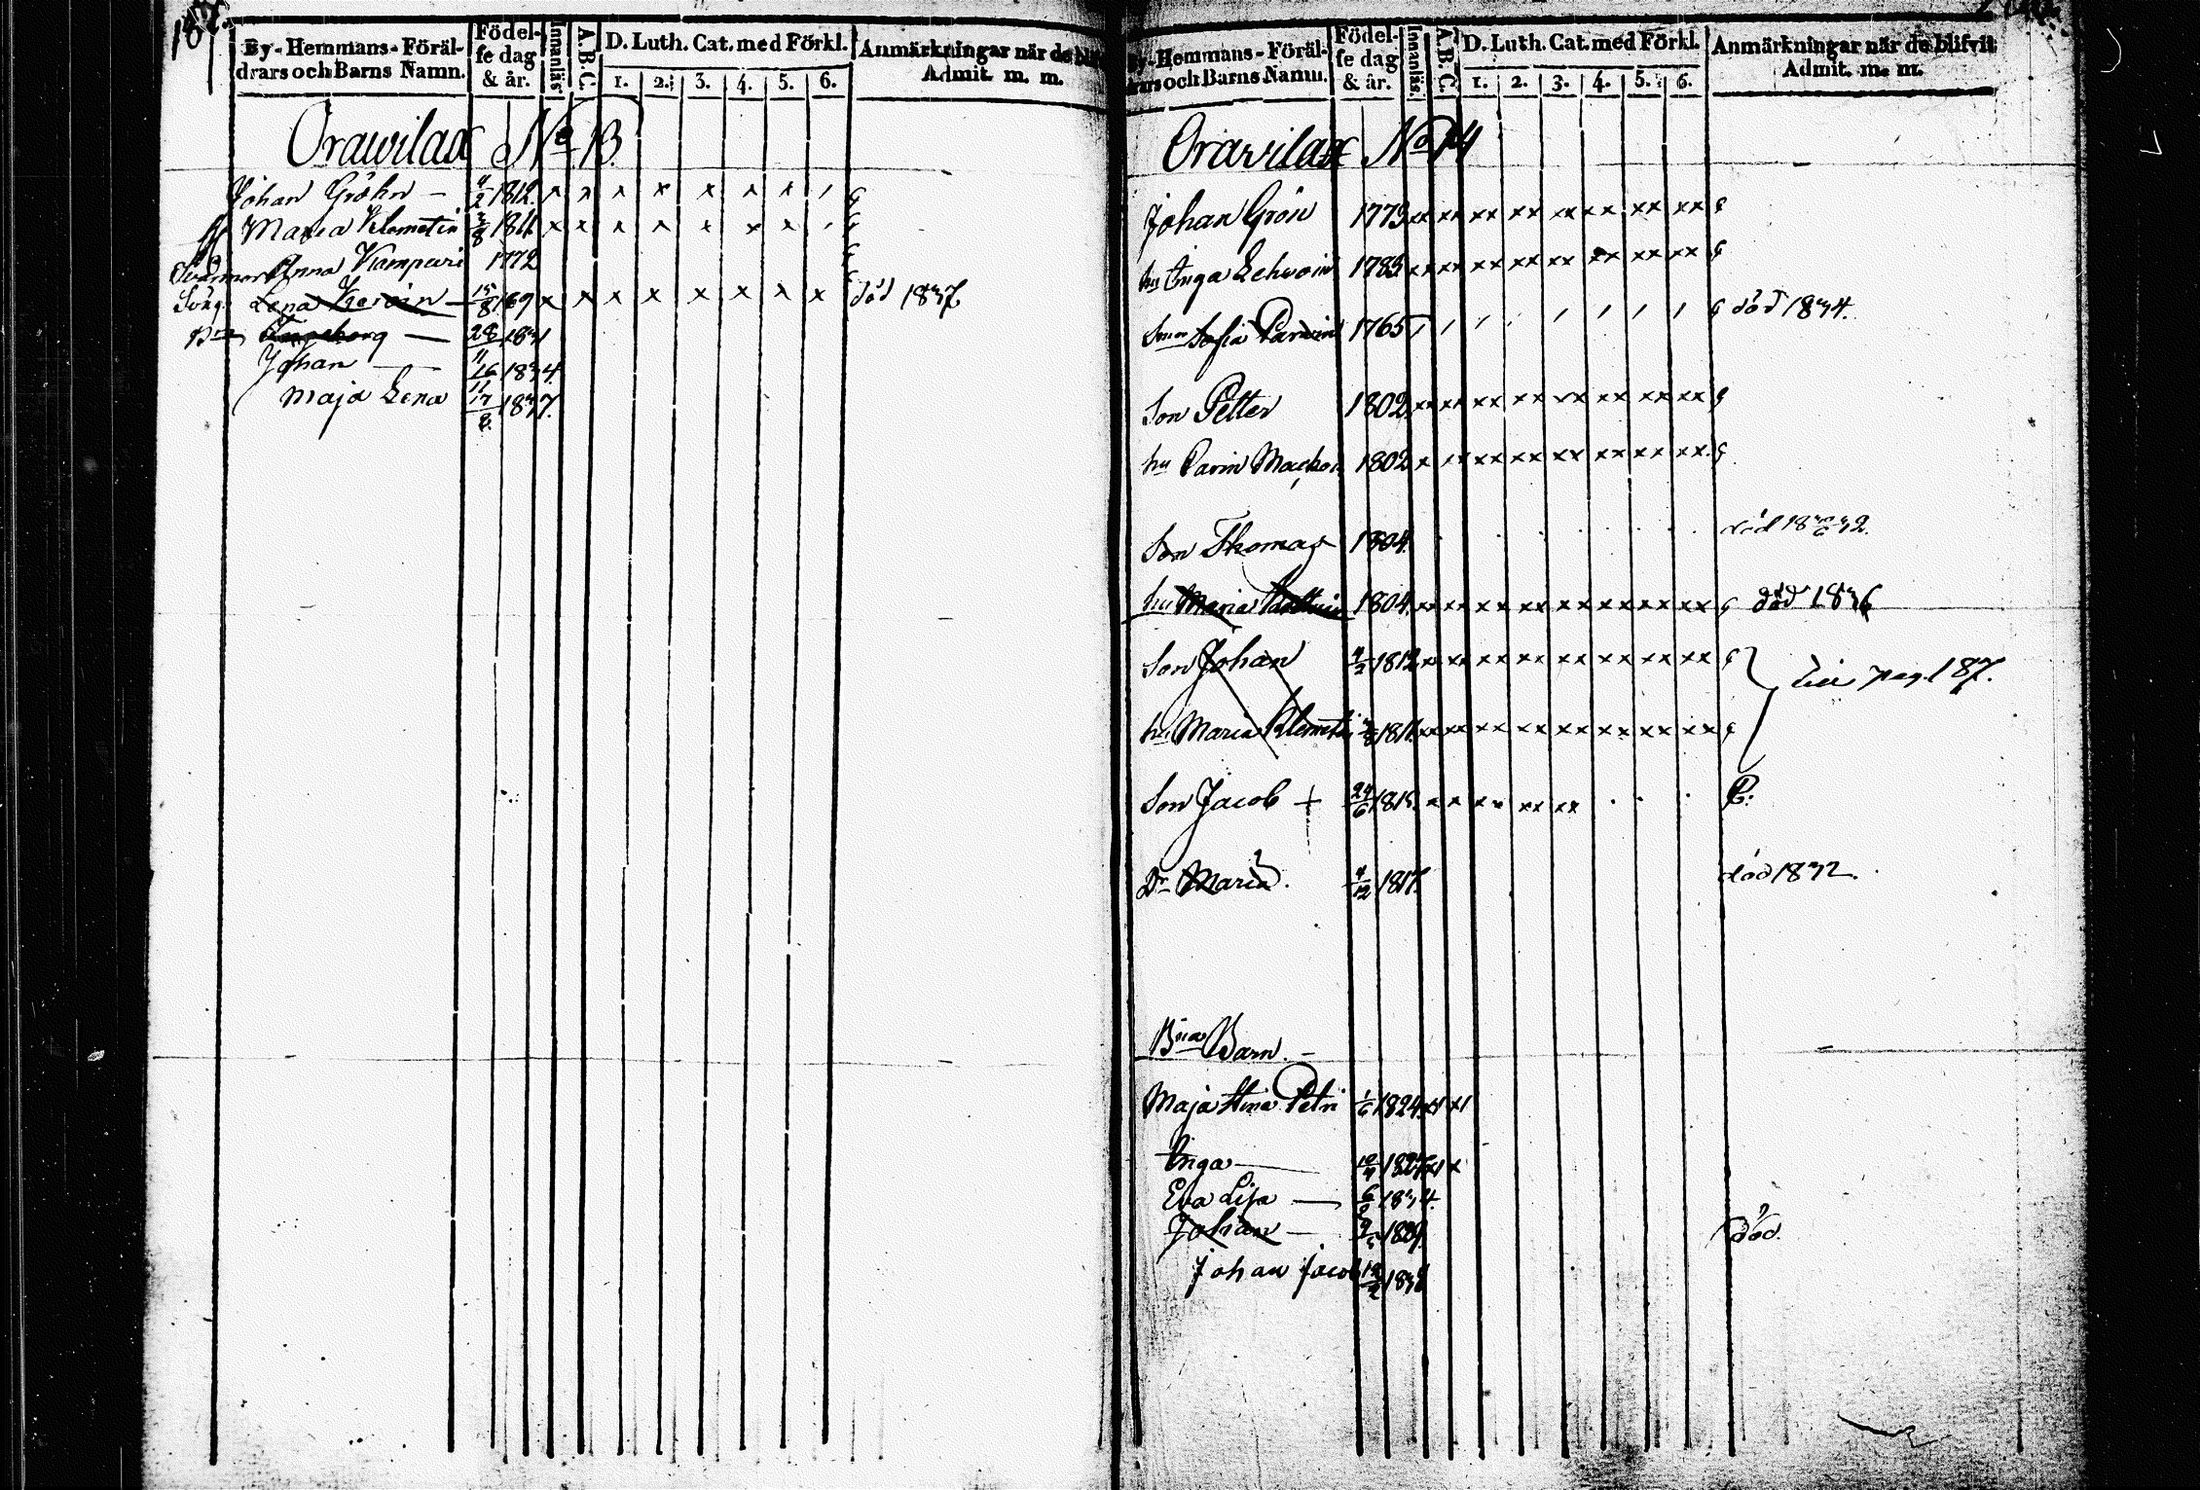 187.
By-Hemmans-Föräl-
drars och Barns Namn.
Födel-
se dag
& år.
Innanläs
A.B.C.
D. Luth. Cat. med Förkl.
1. 2. 3. 4. 5. 6.
Anmärkningar när de
Admit. m. m.
Orawilax No 13.
Johan Gröhn — 4/2 1812. x x x x x x x
Maria Klemetin 3/8 1811 x x x x x x x
Anna Kampuri 1772
Lena 15/8 1769 x x x x x x x x död 1837
Ingeborg — 1831
Johan — 16/11 1834.
Maja Lena 17/8 1837.
By-Hemmans-Föräl-
drars och Barns Namn.
Födel-
se dag
& år.
Innanläs
A.B.C.
D. Luth. Cat. med Förkl.
1. 2. 3. 4. 5. 6.
Anmärkningar när de blifvit
Admit. m. m.
Orawilax No 14
Johan Grön 1773 xx xx xx xx xx xx xx xx
hu Inga 1785 xx xx xx xx xx xx xx xx
Sofia Parwin 1765 död 1834.
Son Petter 1802 xx xx xx xx xx xx xx xx
hu Carin 1802 x xx xx xx xx xx xx xx
Son Thomas 1804.
hu Maria 1804. xx xx xx xx xx xx xx xx död 1836
Son Johan 4/2 1812 xx xx xx xx xx xx xx xx
pag. 187.
hu Maria Klemeti 3/8 1811. xx xx xx xx xx xx xx xx
Son Jacob + 24/6 1815. x x xx xx xx
Dr Maria. 4/12 1817. död 1832.
Barn. —
Maja Stina Petri 1/6 1824
Inga —
Eva Lisa — 1834.
Johan — död.
Johan Jacob